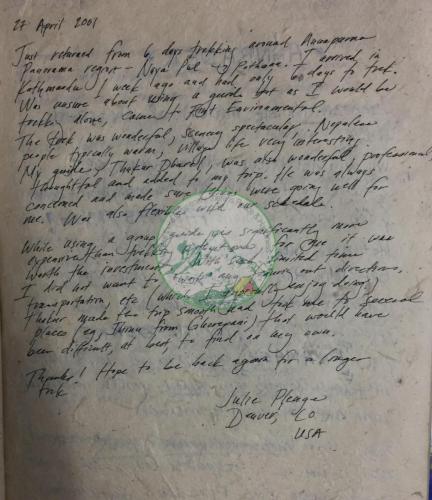 27 April 2001
Just returned from 6 days trekking around Annapurna
Panorama region - Naya Pul → Pokhara. I arrived in
Kathmandu 1 week ago and had only 6 days to trek.
Was unsure about using a guide but as I would be
trekking alone, came to Environmental.
The trek was wonderful, scenery spectacular, Nepalese
people typically warm, village life very interesting.
My guide, Thakur, was also wonderful, professional,
thoughtful and added to my trip. He was always
concerned and made sure things were going well for
me. Was also flexible with our schedule.
While using a guide was significantly more
expensive than trekking for me it was
worth the investment. With limited time
I did not want to out directions,
transportation, etc (which I enjoy doing)
Thakur made the trip smooth and took me to several
places (eg from Ghorepani) that would have
been difficult, at best, to find on my own.
Thanks! Hope to be back again for a longer
trek
Julie
Denver, CO
USA